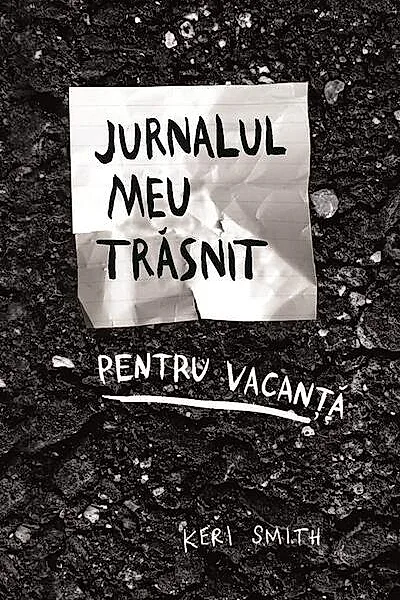 JURNALUL
MEU
TRĂSNIT
PENTRU VACANȚĂ
KERI SMITH